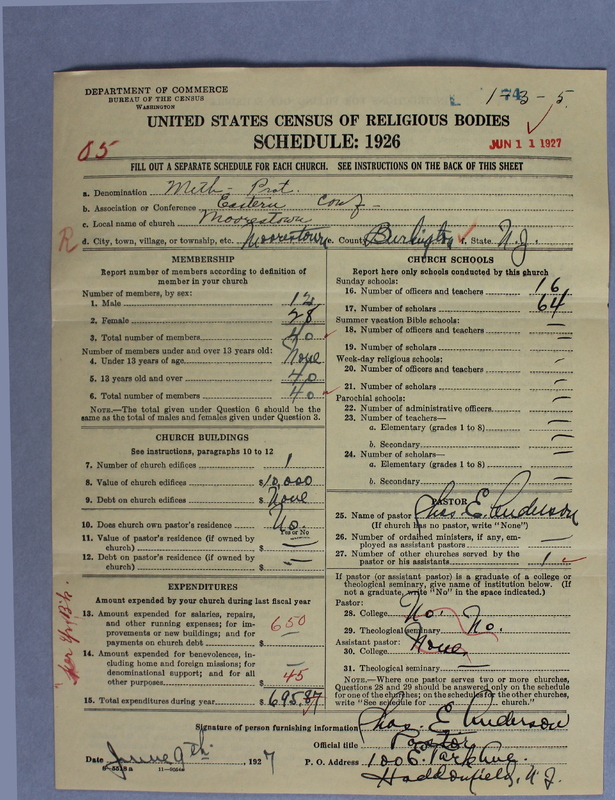 DEPARTMENT OF COMMERCE
BUREAU OF THE CENSUS
WASHINGTON
1-3-5
UNITED STATES CENSUS OF RELIGIOUS BODIES
SCHEDULE: 1926
JUN 11 1927
05
FILL OUT A SEPARATE SCHEDULE FOR EACH CHURCH. SEE INSTRUCTIONS ON THE BACK OF THIS SHEET
a. Denomination Meth- Prot.
b. Association or Conference Eastern Conf-
c. Local name of church Moorestown
R
d. City, town, village, or township, etc. Moorestown e. County Burlington f. State N.J.
MEMBERSHIP
Report number of members according to definition of member in your church
Number of members, by sex:
1. Male 12
2. Female 28
3. Total number of members 40
Number of members under and over 13 years old:
4. Under 13 years of age None
5. 13 years old and over 40
6. Total number of members 40
NOTE.—The total given under Question 6 should be the same as the total of males and females given under Question 3.
CHURCH BUILDINGS
See instructions, paragraphs 10 to 12
7. Number of church edifices 1
8. Value of church edifices $10,000
9. Debt on church edifices $ None
10. Does church own pastor's residence? No.
Yes or No
11. Value of pastor's residence (if owned by church) $ —
12. Debt on pastor's residence (if owned by church) $ —
EXPENDITURES
Amount expended by your church during last fiscal year
13. Amount expended for salaries, repairs, and other running expenses; for improvements or new buildings; and for payments on church debt $ 650
14. Amount expended for benevolences, including home and foreign missions; for denominational support; and for all other purposes $ 45
15. Total expenditures during year $ 695.87
CHURCH SCHOOLS
Report here only schools conducted by this church
Sunday schools:
16. Number of officers and teachers 16
17. Number of scholars 64
Summer vacation Bible schools:
18. Number of officers and teachers —
19. Number of scholars —
Week-day religious schools:
20. Number of officers and teachers —
21. Number of scholars —
Parochial schools:
22. Number of administrative officers —
23. Number of teachers—
a. Elementary (grades 1 to 8) —
b. Secondary —
24. Number of scholars—
a. Elementary (grades 1 to 8) —
b. Secondary —
PASTOR
25. Name of pastor Chas. E. Anderson
(If church has no pastor, write "None")
26. Number of ordained ministers, if any, employed as assistant pastors —
27. Number of other churches served by the pastor or his assistants 1
If pastor (or assistant pastor) is a graduate of a college or theological seminary, give name of institution below. (If not a graduate, write "No" in the space indicated.)
Pastor:
28. College No.
29. Theological seminary No.
Assistant pastor:
30. College None
31. Theological seminary —
NOTE.—Where one pastor serves two or more churches, Questions 28 and 29 should be answered only on the schedule for one of the churches; on the schedules for the other churches, write "See schedule for church."
Signature of person furnishing information Chas. E. Anderson
Official title Pastor
Date June 9th. 1927
P. O. Address 100 E. Park Ave.
Haddonfield, N.J.